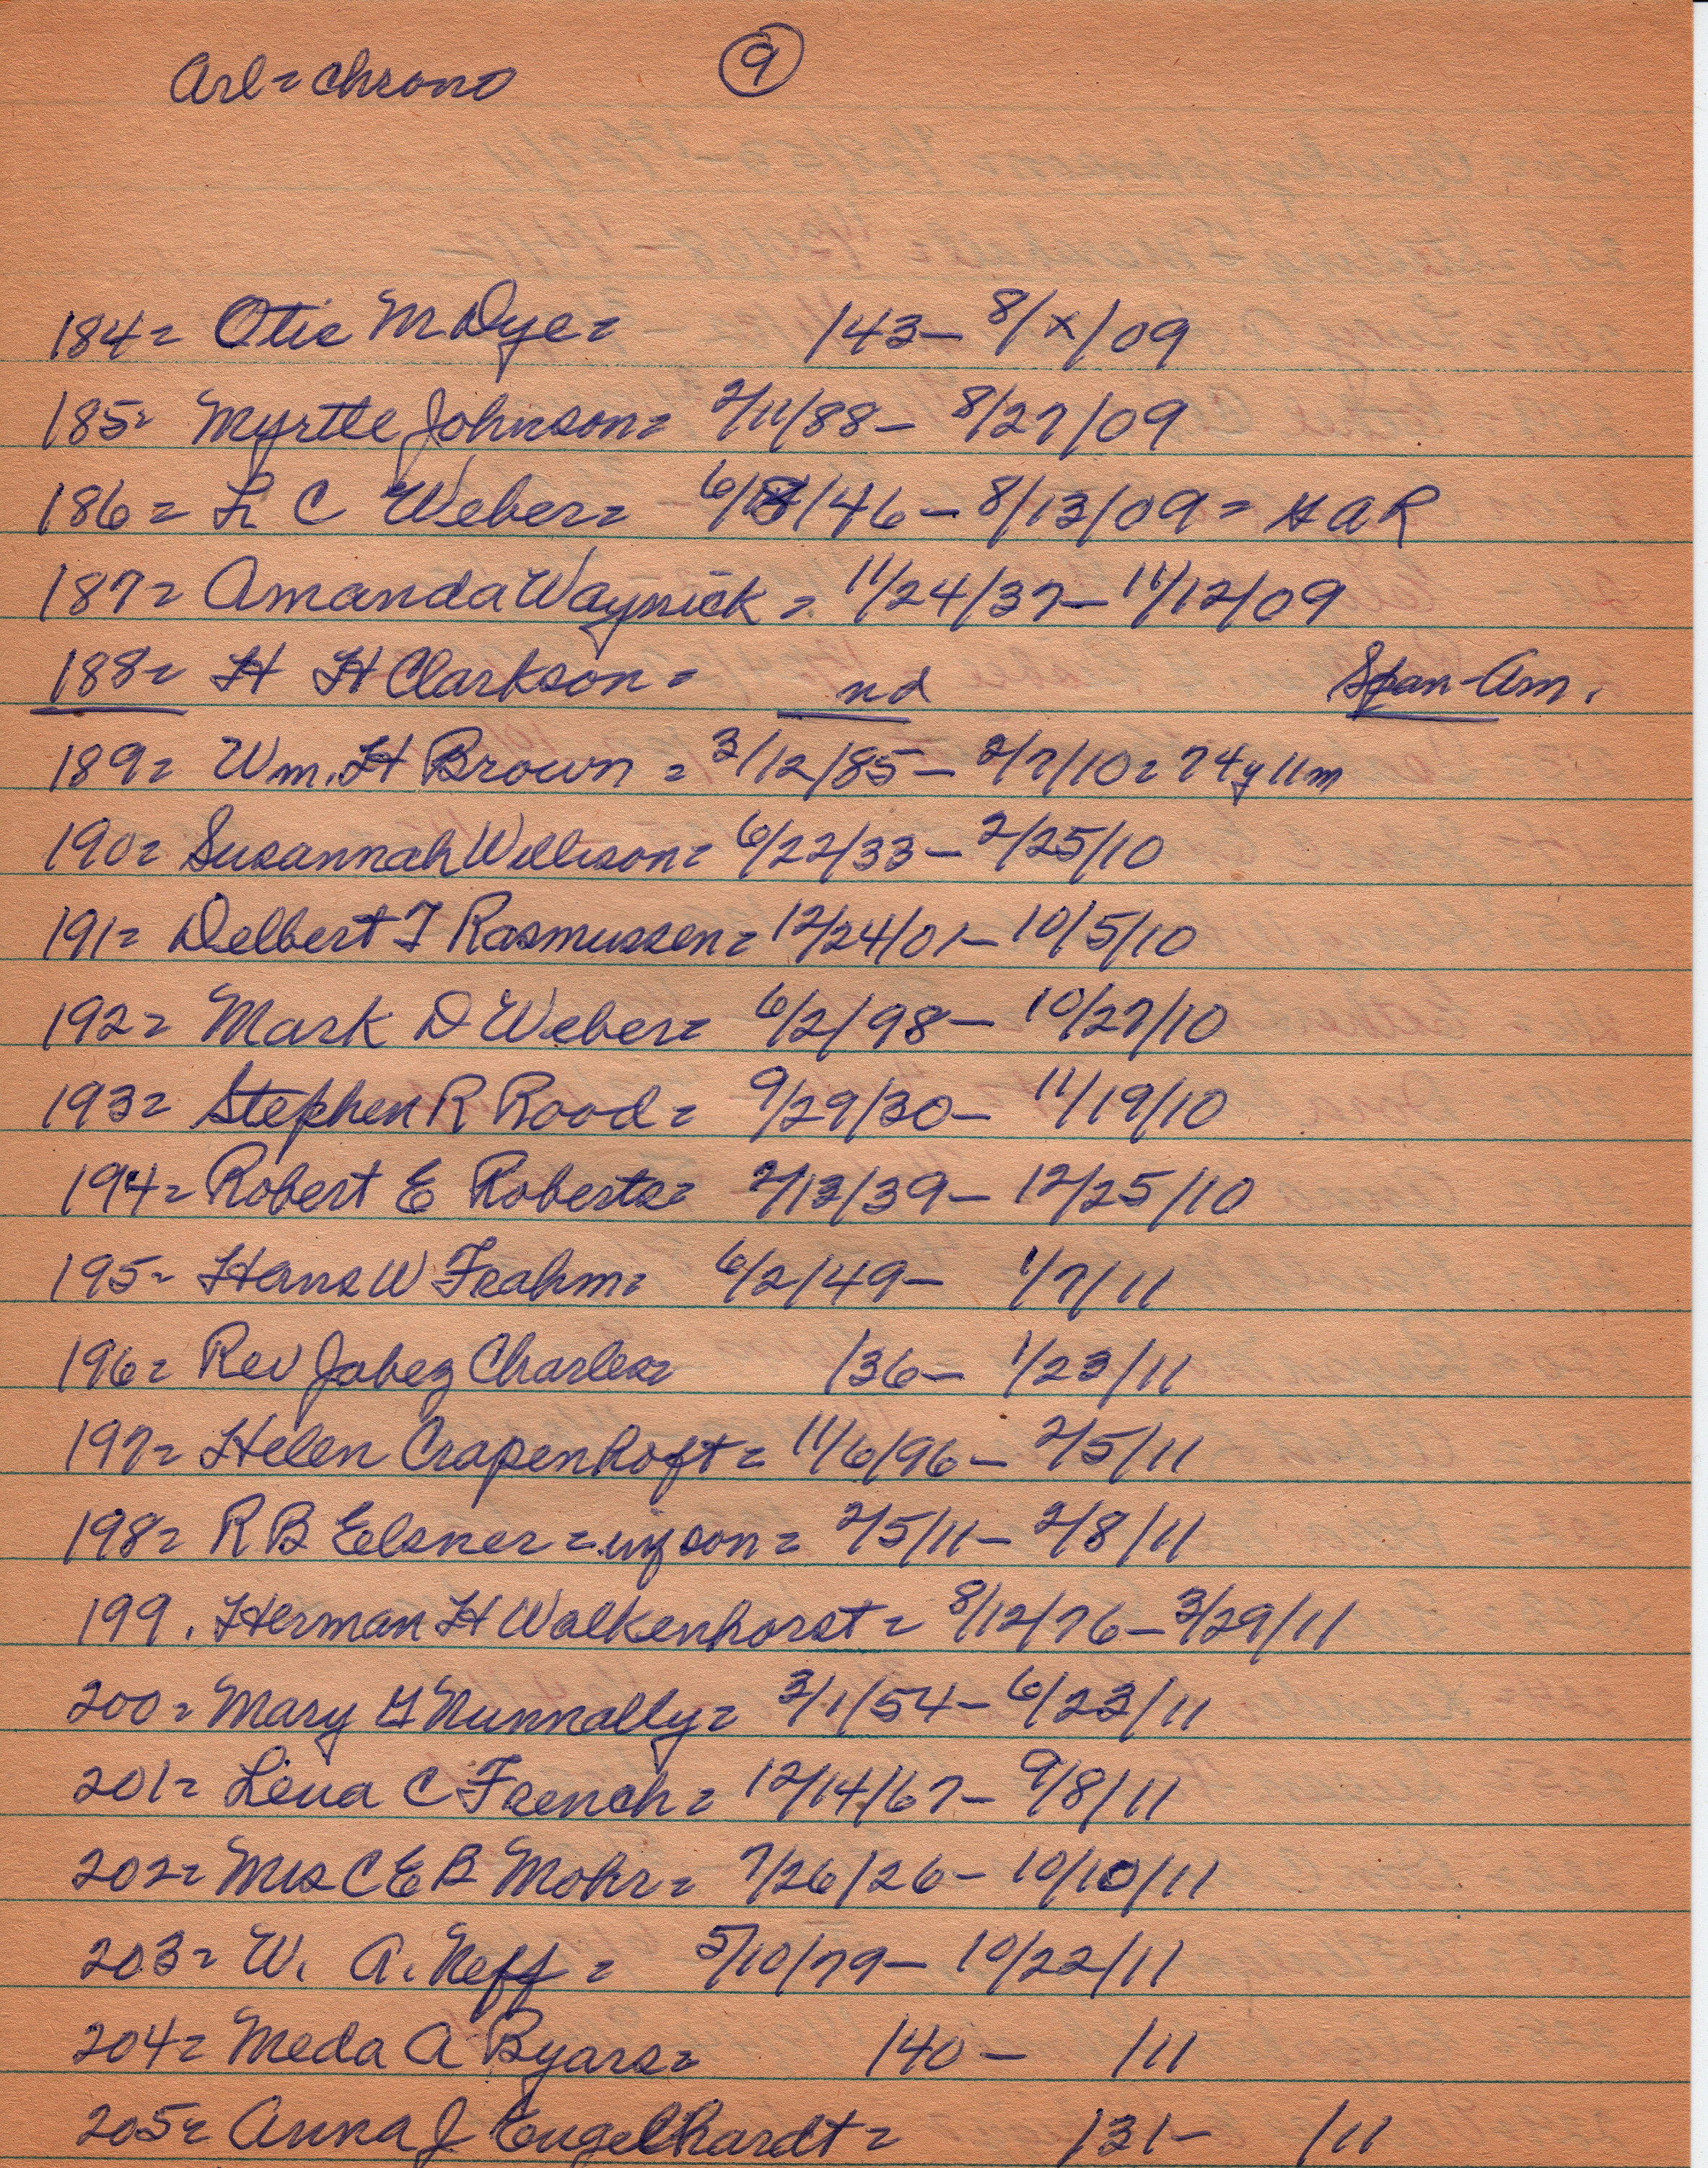 Arl = chrono 9
184 = Otis M Dye = /43 - 8/x/09
185 = Myrtle Johnson = 2/11/88 - 8/27/09
186 = L C Weber = 6/18/46 - 8/13/09 = GAR
187 = Amanda Waynick = 11/24/37 - 11/12/09
188 = H H Clarkson = nd Span-Am.
189 = Wm. H Brown = 3/12/85 - 2/7/10 = 74y 11m
190 = Susannah Willison = 6/22/33 - 2/25/10
191 = Delbert T Rasmussen = 12/24/01 - 10/5/10
192 = Mark D Weber = 6/2/98 - 10/27/10
193 = Stephen R Rood = 9/29/30 - 11/19/10
194 = Robert E Roberts = 2/13/39 - 12/25/10
195 = Hans W Frahm = 6/2/49 - 1/7/11
196 = Rev Jabez Charles = /36 - 1/23/11
197 = Helen Crapenhoft = 11/6/96 - 2/5/11
198 = R B Elsner = inf son = 2/5/11 - 2/8/11
199. Herman H Walkenhorst = 8/12/76 - 3/29/11
200 = Mary G Nunnally = 3/1/54 - 6/23/11
201 = Lena C French = 12/14/67 - 9/8/11
202 = Mrs C E B Mohr = 7/26/26 - 10/10/11
203 = W. A. Neff = 5/10/79 - 10/22/11
204 = Meda A Byars = /40 - /11
205 = Anna J Engelhardt = /31 - /11